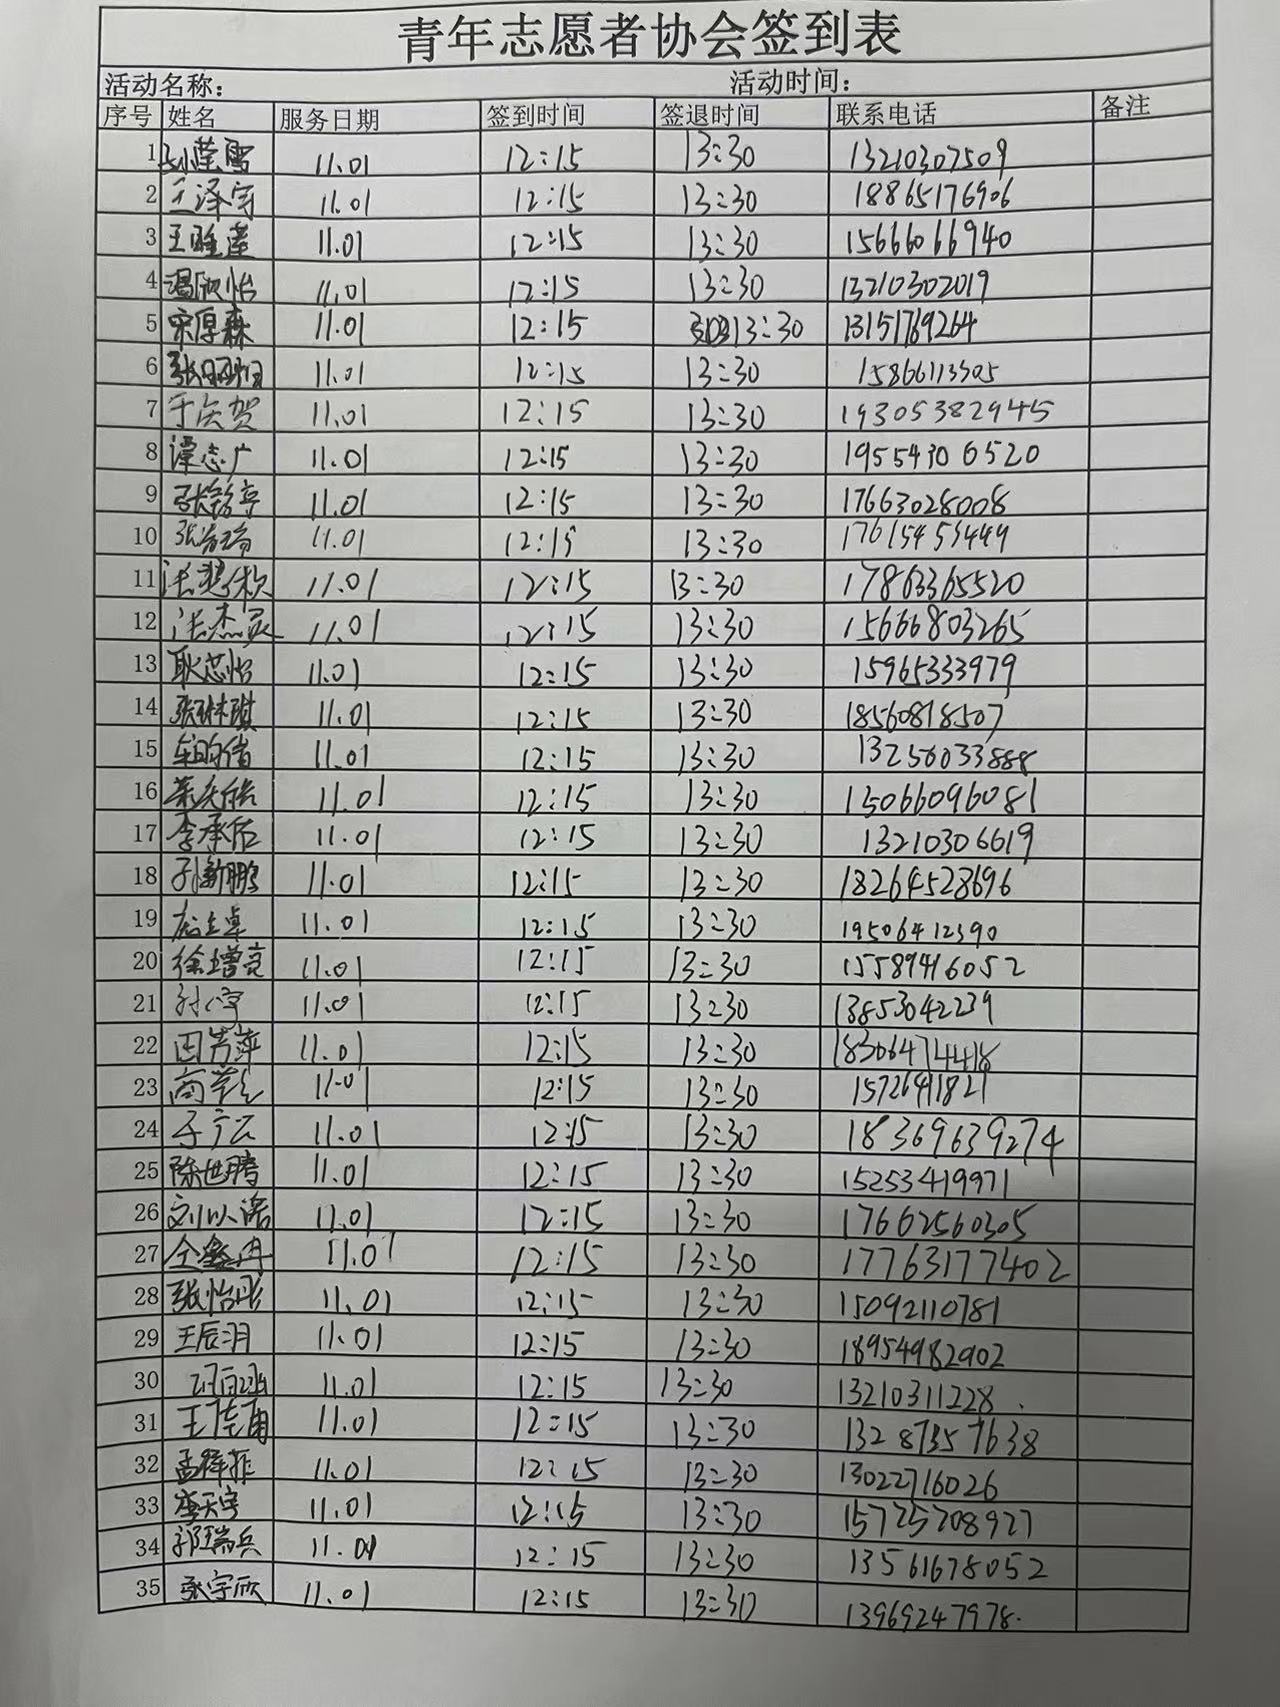 青年志愿者协会签到表
活动名称： 活动时间：
序号 姓名 服务日期 签到时间 签退时间 联系电话 备注
1 11.01 12:15 13:30 13210307509
2 王泽宇 11.01 12:15 13:30 18865176906
3 11.01 12:15 13:30 15666066940
4 温欣怡 11.01 12:15 13:30 13210302019
5 宋厚森 11.01 12:15 13:30 13151769264
6 11.01 12:15 13:30 15866113505
7 于庆贺 11.01 12:15 13:30 19305382945
8 谭志广 11.01 12:15 13:30 19554306520
9 11.01 12:15 13:30 17663028008
10 11.01 12:15 13:30 17615453449
11 11.01 12:15 13:30 17863365520
12 11.01 12:15 13:30 15666803265
13 耿芯怡 11.01 12:15 13:30 15965333979
14 张琳琪 11.01 12:15 13:30 18560818507
15 11.01 12:15 13:30 13256033888
16 11.01 12:15 13:30 15066096081
17 李承佑 11.01 12:15 13:30 13210306619
18 孙新鹏 11.01 12:15 13:30 18264528696
19 11.01 12:15 13:30 19506412390
20 徐增亮 11.01 12:15 13:30 15589416052
21 11.01 12:15 13:30 13853042239
22 田芳萍 11.01 12:15 13:30 18306474418
23 11.01 12:15 13:30 15726411821
24 于广云 11.01 12:15 13:30 18369639274
25 陈世腾 11.01 12:15 13:30 15253419971
26 刘以诺 11.01 12:15 13:30 17662560305
27 仝鑫冉 11.01 12:15 13:30 17763177402
28 张怡彤 11.01 12:15 13:30 15092110781
29 王辰羽 11.01 12:15 13:30 18954982902
30 11.01 12:15 13:30 13210311228
31 王佳甬 11.01 12:15 13:30 13287357638
32 孟祥菲 11.01 12:15 13:30 13022716026
33 李天宇 11.01 12:15 13:30 15725208927
34 郭瑞兵 11.01 12:15 13:30 13561678052
35 张宇欣 11.01 12:15 13:30 13969247978